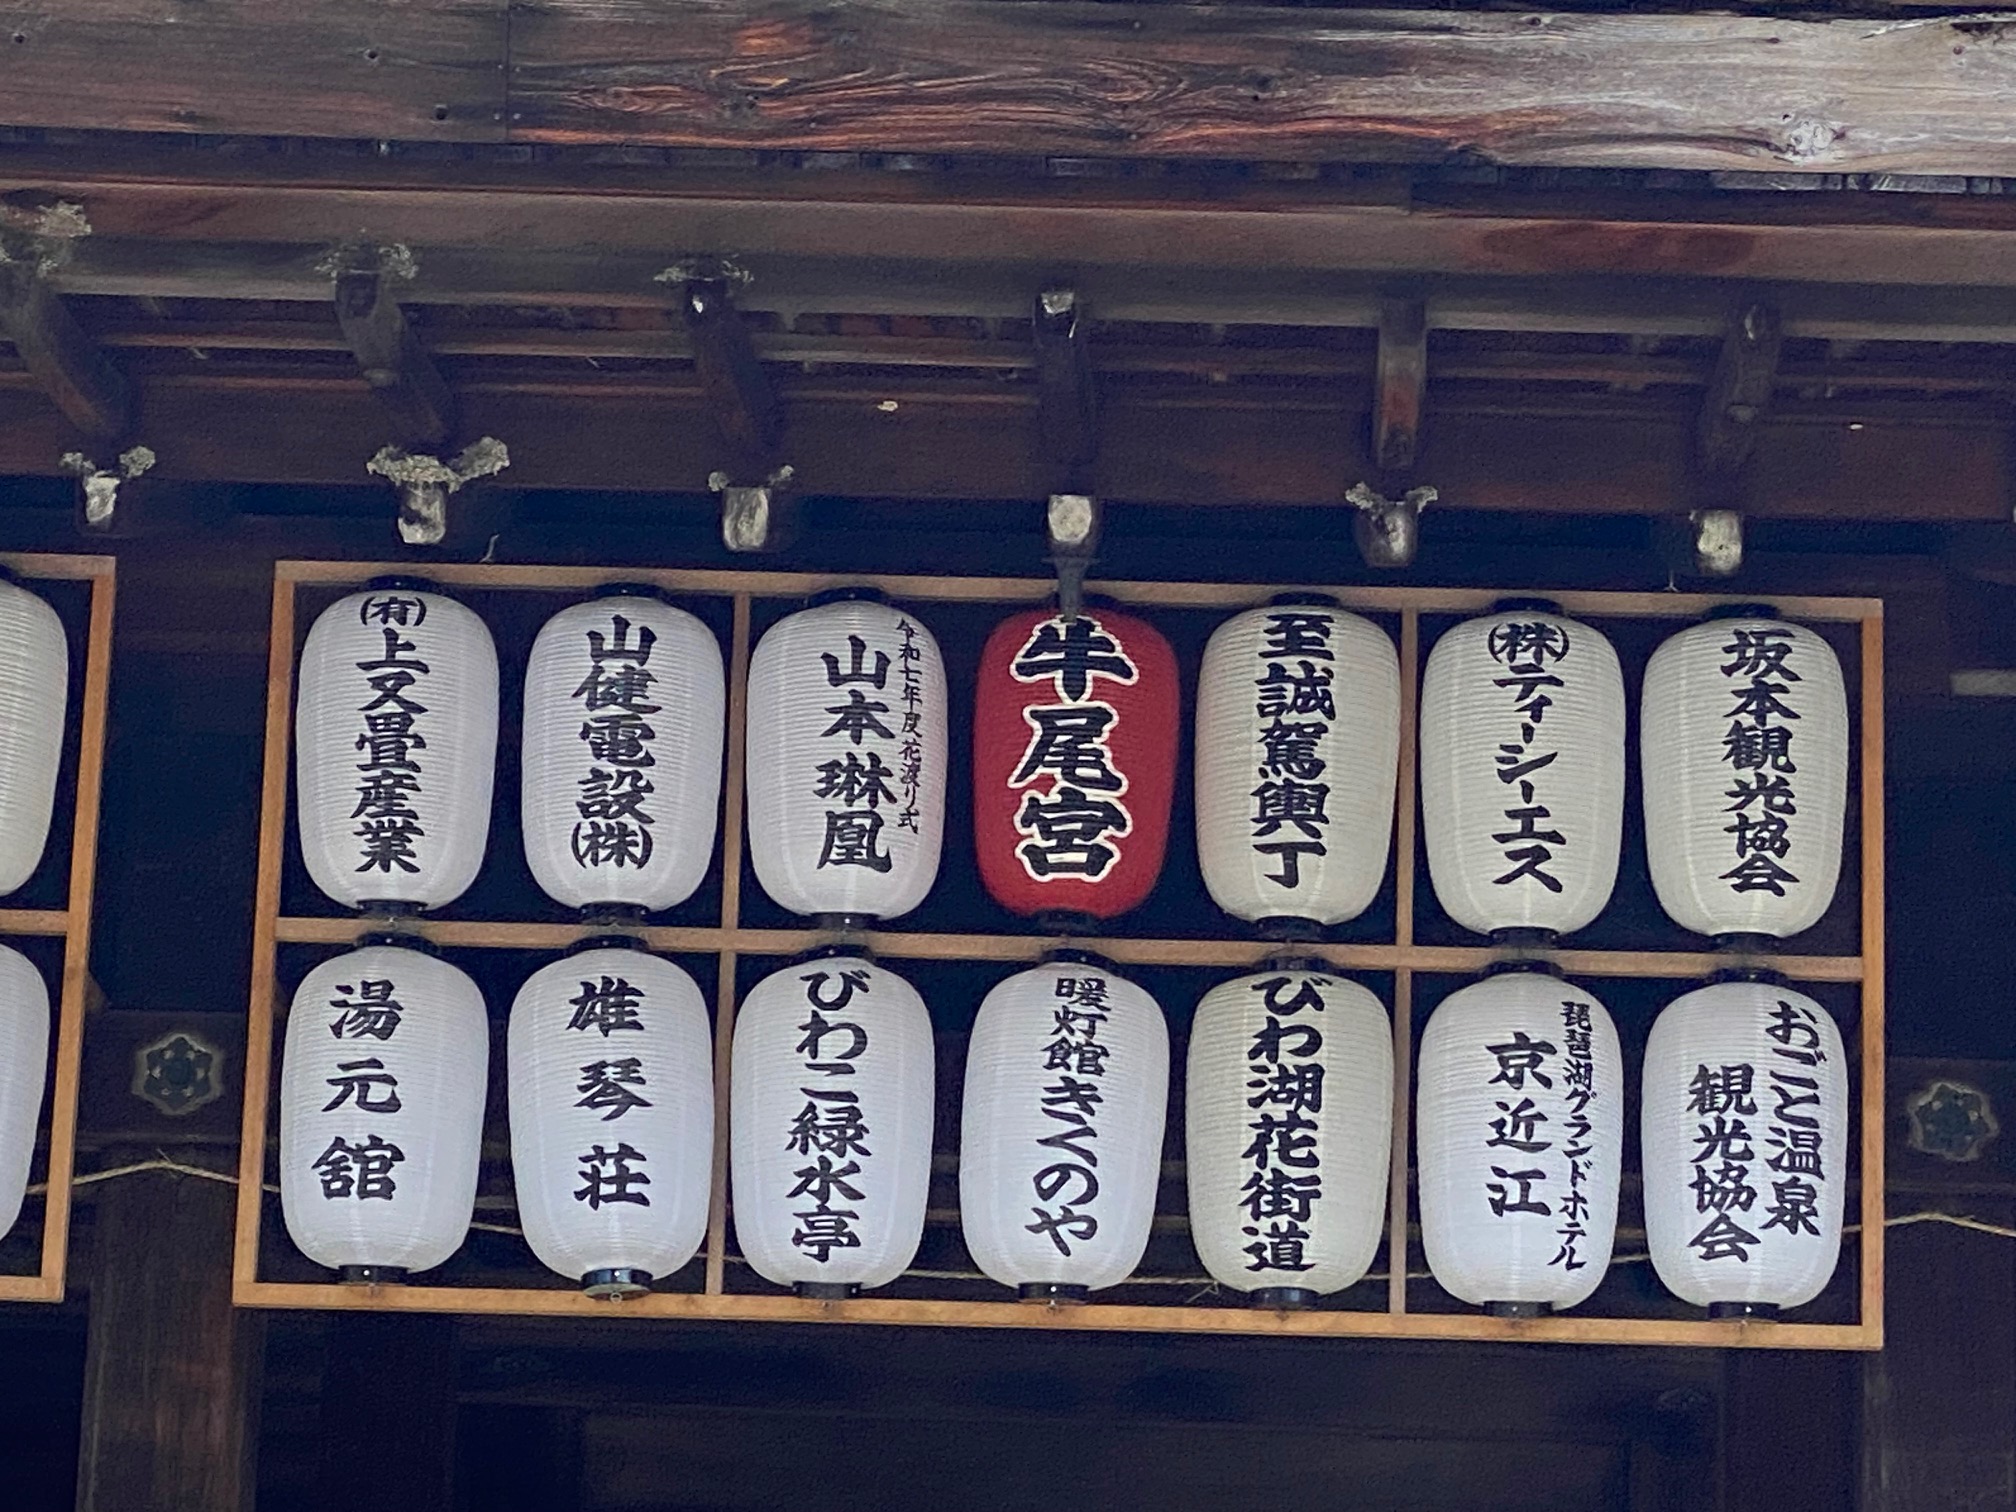 坂本観光協会
(株)ティーシーエス
至誠駕輿丁
牛尾宮
令和七年度花渡り式
山本琳凰
山健電設(株)
(有)上又畳産業
おごと温泉
観光協会
琵琶湖グランドホテル
京近江
びわ湖花街道
暖灯館きくのや
びわこ緑水亭
雄琴荘
湯元舘